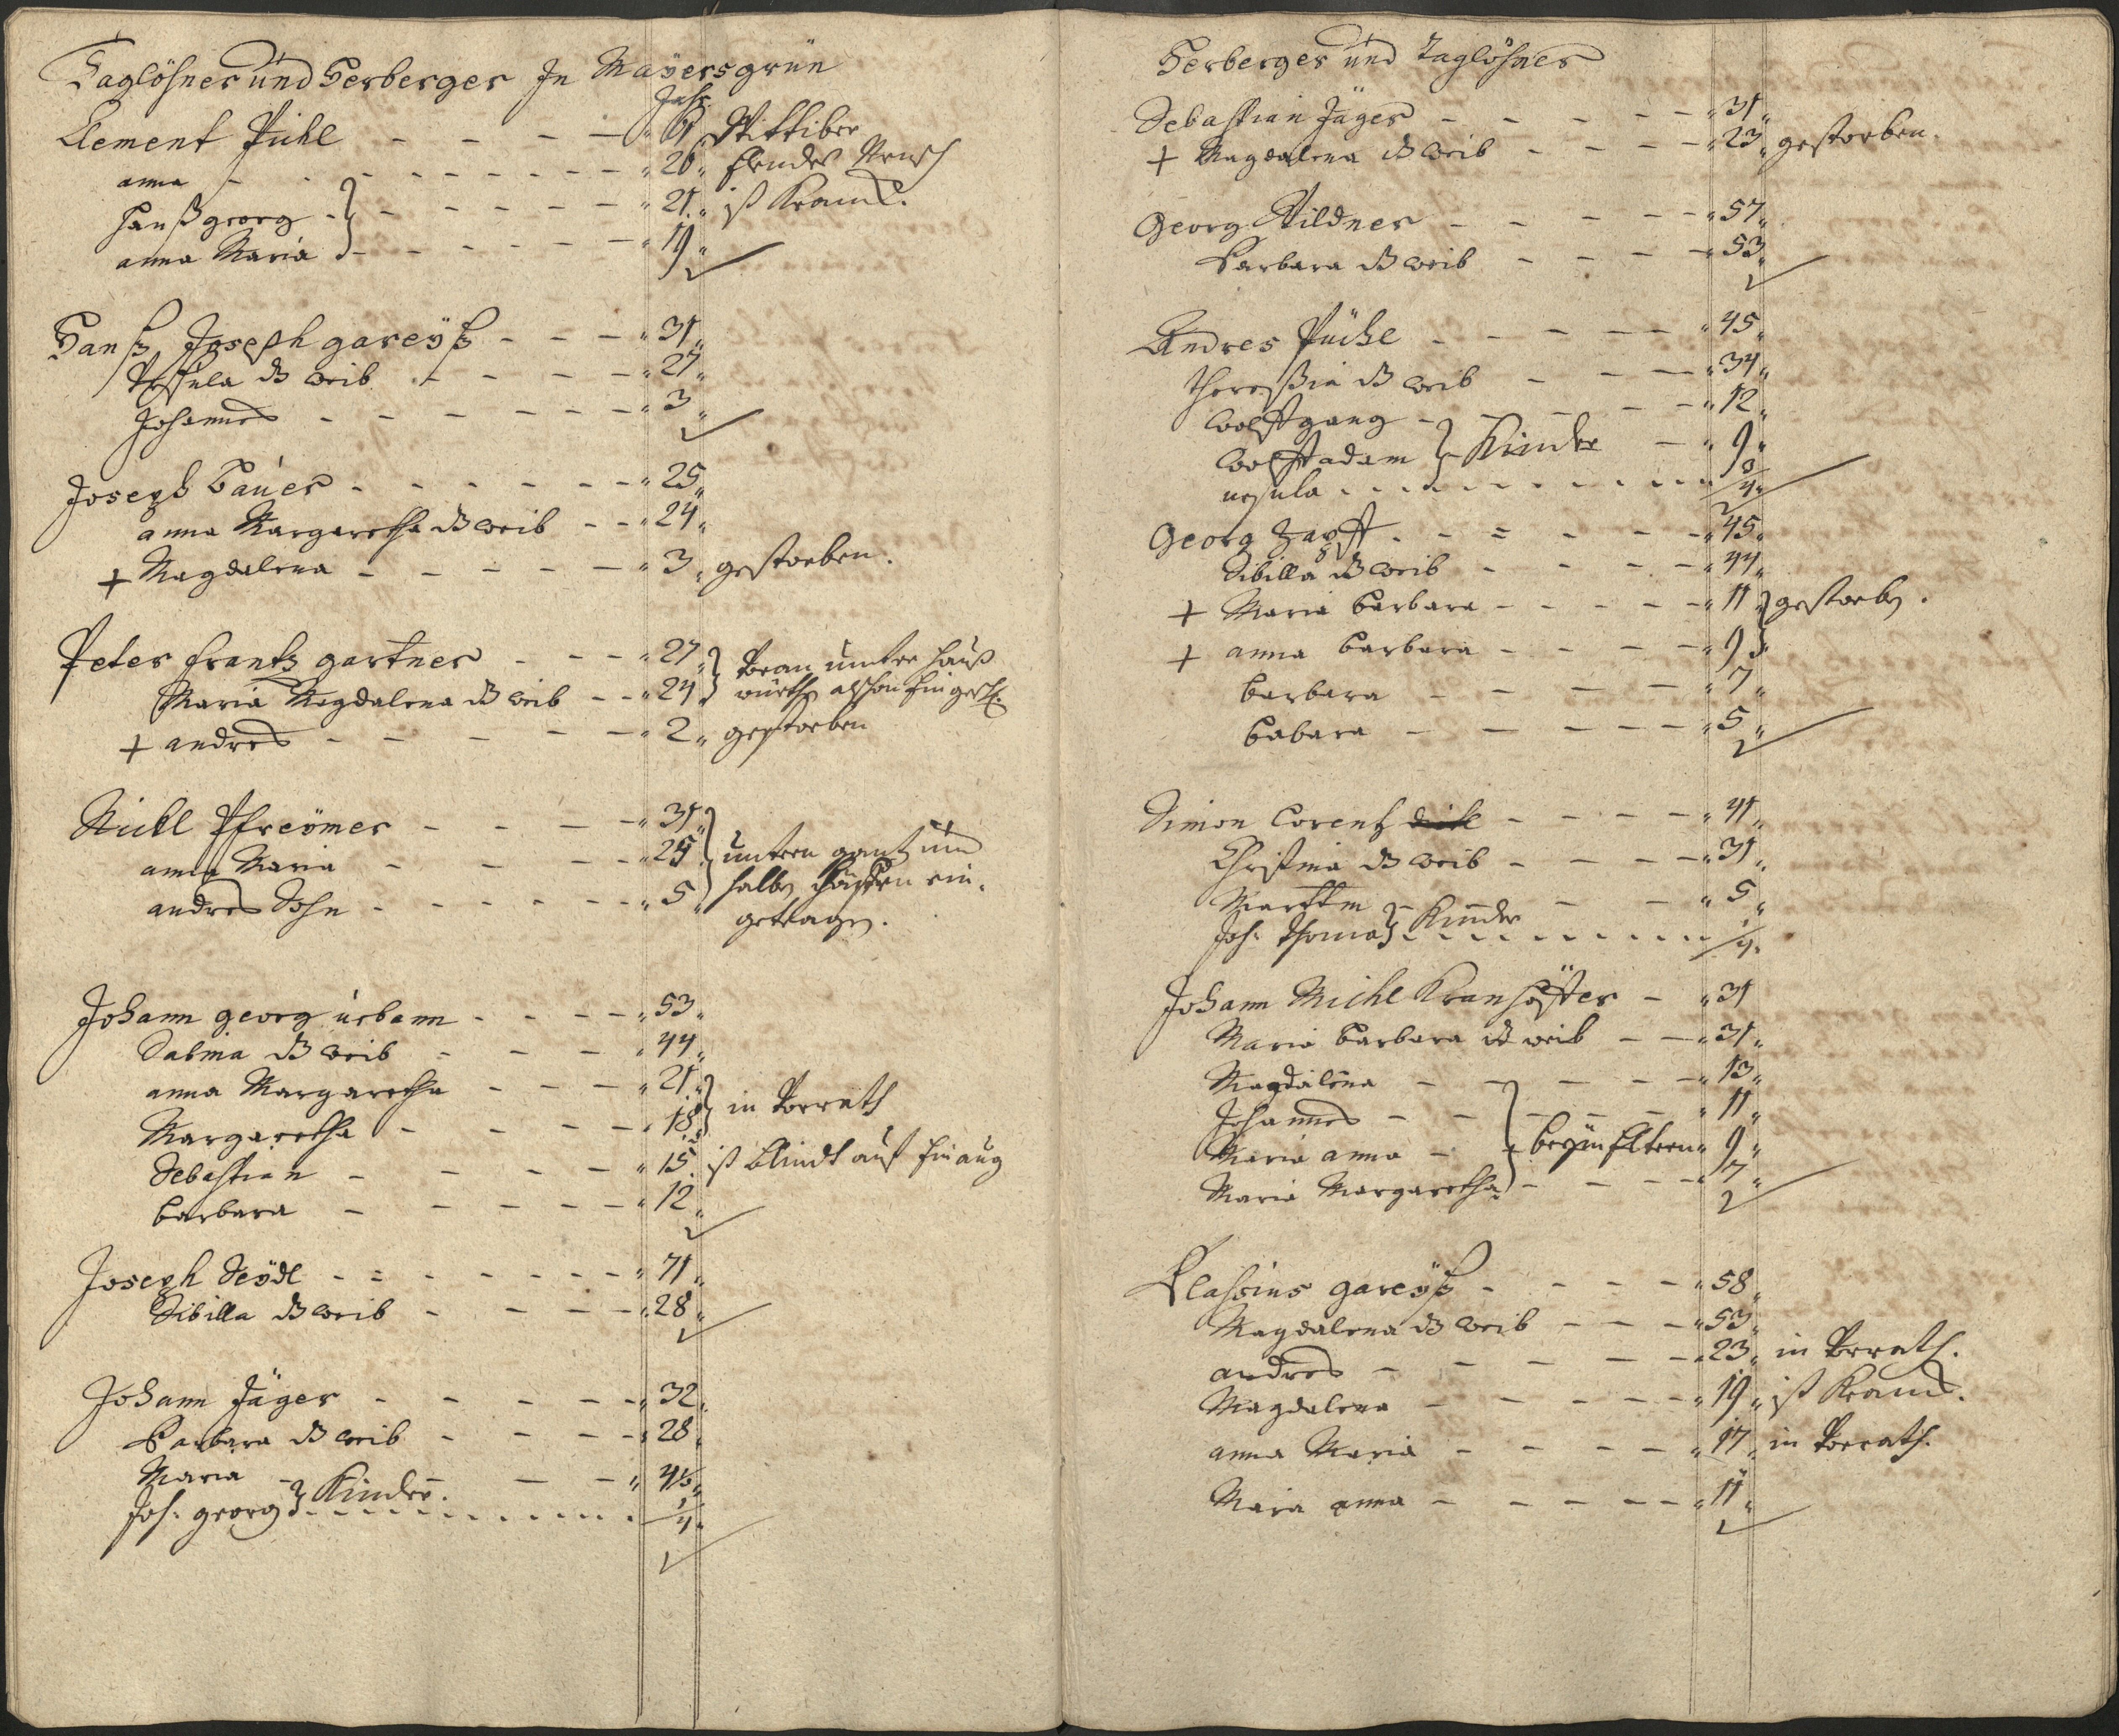 Taglöhner und Herberger In Mayersgrün
Jahr
Clement Pühl - - - - 61 Wittiber
anna - - - - 26
Hanß georg - - - - 21 ist Kranck.
anna Maria - - - - 19
Hanß Joseph gareyß - - - 31
Ursula d. weib - - - - 27
Johannes - - - - 3
Joseph Bauer - - - - 25
anna Margaretha d. weib - - 24
+ Magdalena - - - - 3 gestorben.
Peter frantz gartner - - - 27
Maria Magdalena d. weib - - 24
+ andres - - - - 2 gestorben
Michl Pfreymer - - - - 31
anna Maria - - - - 25 untern gantz und
andres Sohn - - - - 5 halben Höffen ein-
getragen.
Johann georg urbann - - - - 53
Sabina d. weib - - - 44
anna Margaretha - - - 21
in Vorrath
Margaretha - - - - 18
Sebastian - - - - 15 ist blindt auf Ein aug
barbara - - - - 12
Joseph Seydl - - - - 71
Sibilla d. weib - - - - 28
Johann Jäger - - - - 32
Barbara d. weib - - - - 28
Maria - - - -
Joh: georg } Kinder. - - - - 1/4
Herberger und Taglöhner
Sebastian Jäger - - - - 31
+ Magdalena d. weib - - - - 23 gestorben.
Georg Wildner - - - - 57
Barbara d. weib - - - - 53
Andres Püchl - - - - 45
Theressia d. weib - - - 34
Wolffgang - - - - 12
Wolff adam } Kinder - 9
ursula - - - - 3/4
Georg Zapff - - - - 45
Sibilla d. weib - - - - 44
+ Maria barbara - - - - 11 } gestorben.
+ anna barbara - - - - 9
barbara - - - - 7
babara - - - - 5
Simon Lorentz - - - - 41
Christina d. weib - - - - 31
Marttin - - - 5
Joh: Thoma } Kinder - - - - 1/4
Johann Michl Kranhöffter - 31
Maria barbara d. weib - - 31
Magdalena - - - - 13
Johannes - - - - 11
Maria anna - } beym Eltern 9
Maria Margaretha - - - - 7
Blassius gareyß - - - - 58
Magdalena d. weib - - - 53
andres - - - - 23 in Vorrath.
Magdalena - - - - 19 ist Kranck.
anna Maria - - - - 17 in Vorrath.
Maria anna - - - - 11